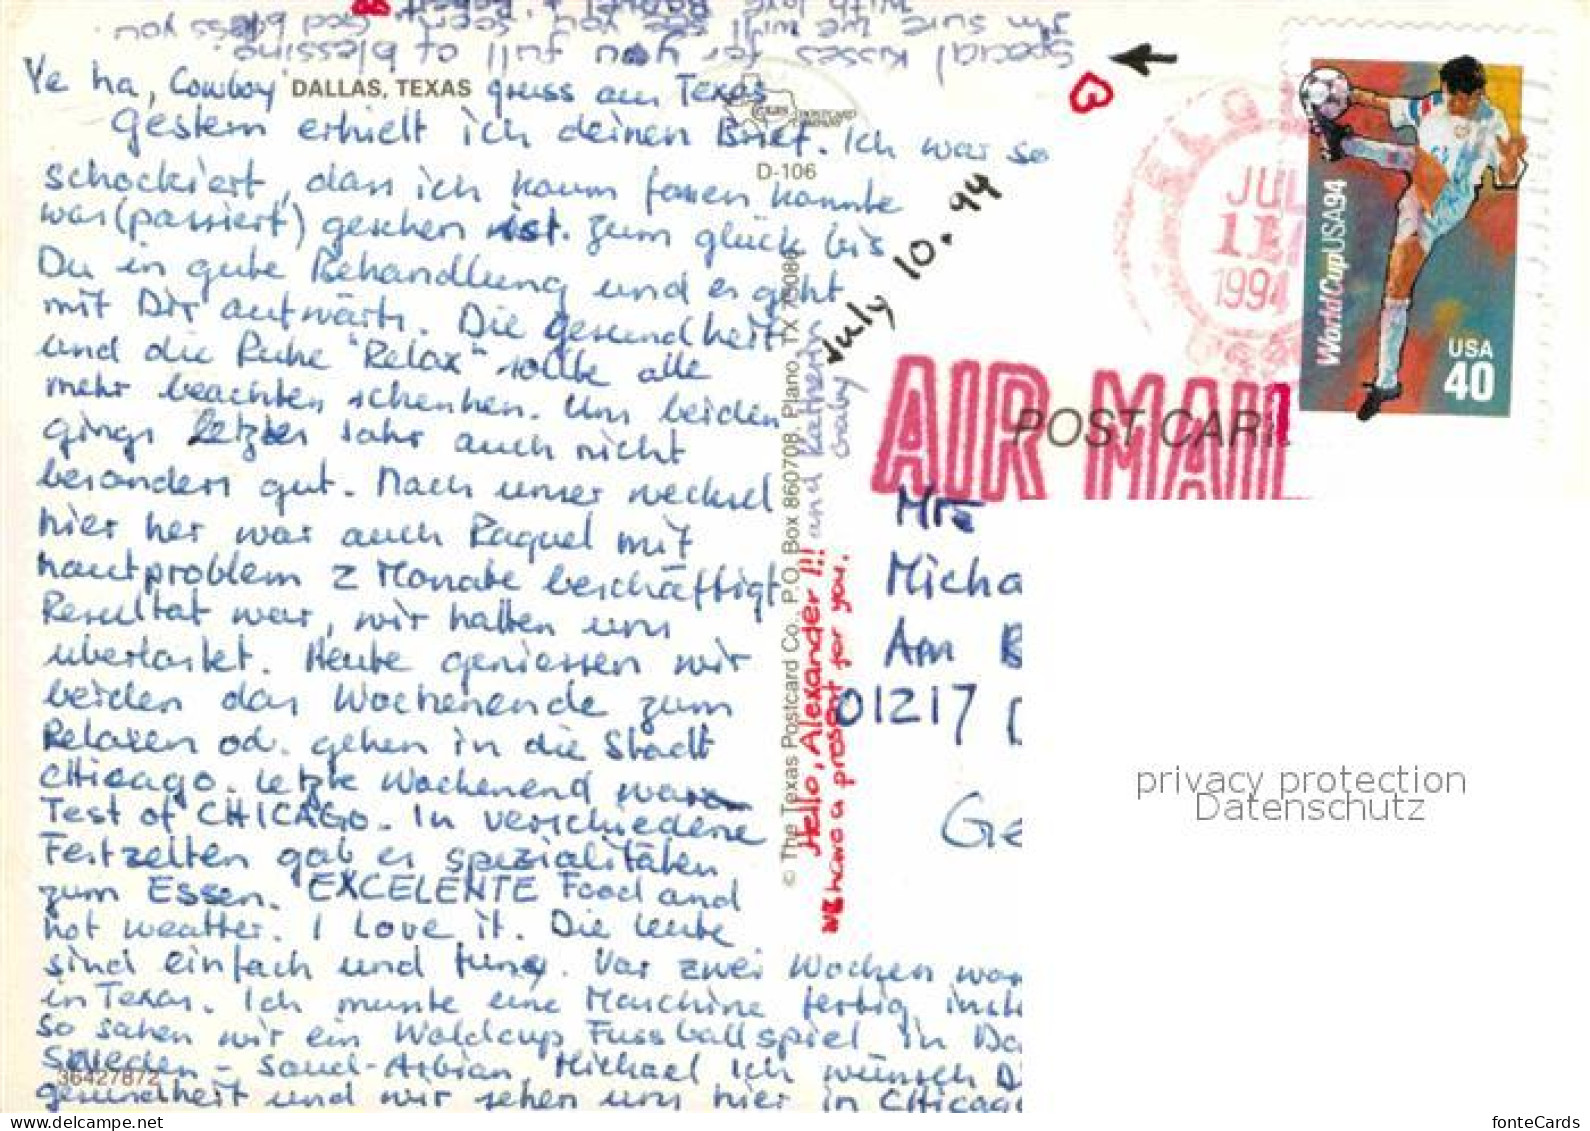 with love
I'm sure we will see you soon. God bless you
Special kisses for you full of blessing
Ye ha, Cowboy gruss aus Texas
DALLAS, TEXAS
D-106
Gestern erhielt ich deinen Brief. Ich war so
schockiert, dass ich kaum fassen konnte
was (passiert) geschen ist. Zum glück bis
Du in gute Behandlung und es geht
mit Dir aufwärts. Die gesundheit
und die Ruhe "Relax" sollte alle
mehr beachten schenken. Uns beiden
gings letztes Jahr auch nicht
besonders gut. Nach unser wechsel
hier her war auch Raquel mit
hautproblem 2 Monate beschäftigt
Resultat war, wir hatten uns
überlastet. Heute geniessen wir
beiden das Wochenende zum
Relaxen od. gehen in die Stadt
CHicago. Letzte Wochenend war
Test of CHICAGO. In verschiedene
Festzelten gab es spezialitäten
zum Essen. EXCELENTE Food and
hot weather. I Love it. Die leute
sind einfach und Vor zwei Wochen war
in Texas. Ich musste eine Maschine fertig
so sahen wir ein Woldcup Fussballspiel in Da
Sweden - Saud-Arbian. Michael Ich wünsch D
gesundheit und wir sehen uns hier in CHicago
36427872
© The Texas Postcard Co., P.O. Box 860708, Plano, TX 75086
Hello, Alexander!!! and
Gaby
We have a present for you.
July 10. 94
JUL
11
1994
WorldCupUSA94
USA
40
AIR MAIL
POST CARD
Micha
Am B
01217
Ge
privacy protection
Datenschutz
fonteCards